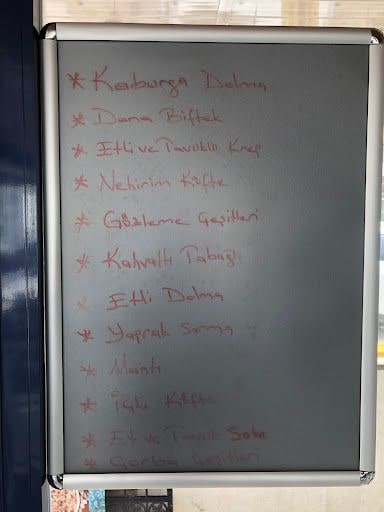 * Kaburga Dolma
* Dana Biftek
* Etli ve Tavuklu Krep
* Nehirim Köfte
* Gözleme Çeşitleri
* Kahvaltı Tabağı
* Etli Dolma
* Yaprak Sarma
* Mantı
* İçli Köfte
* Et ve Tavuk Sote
* Çorba Çeşitleri